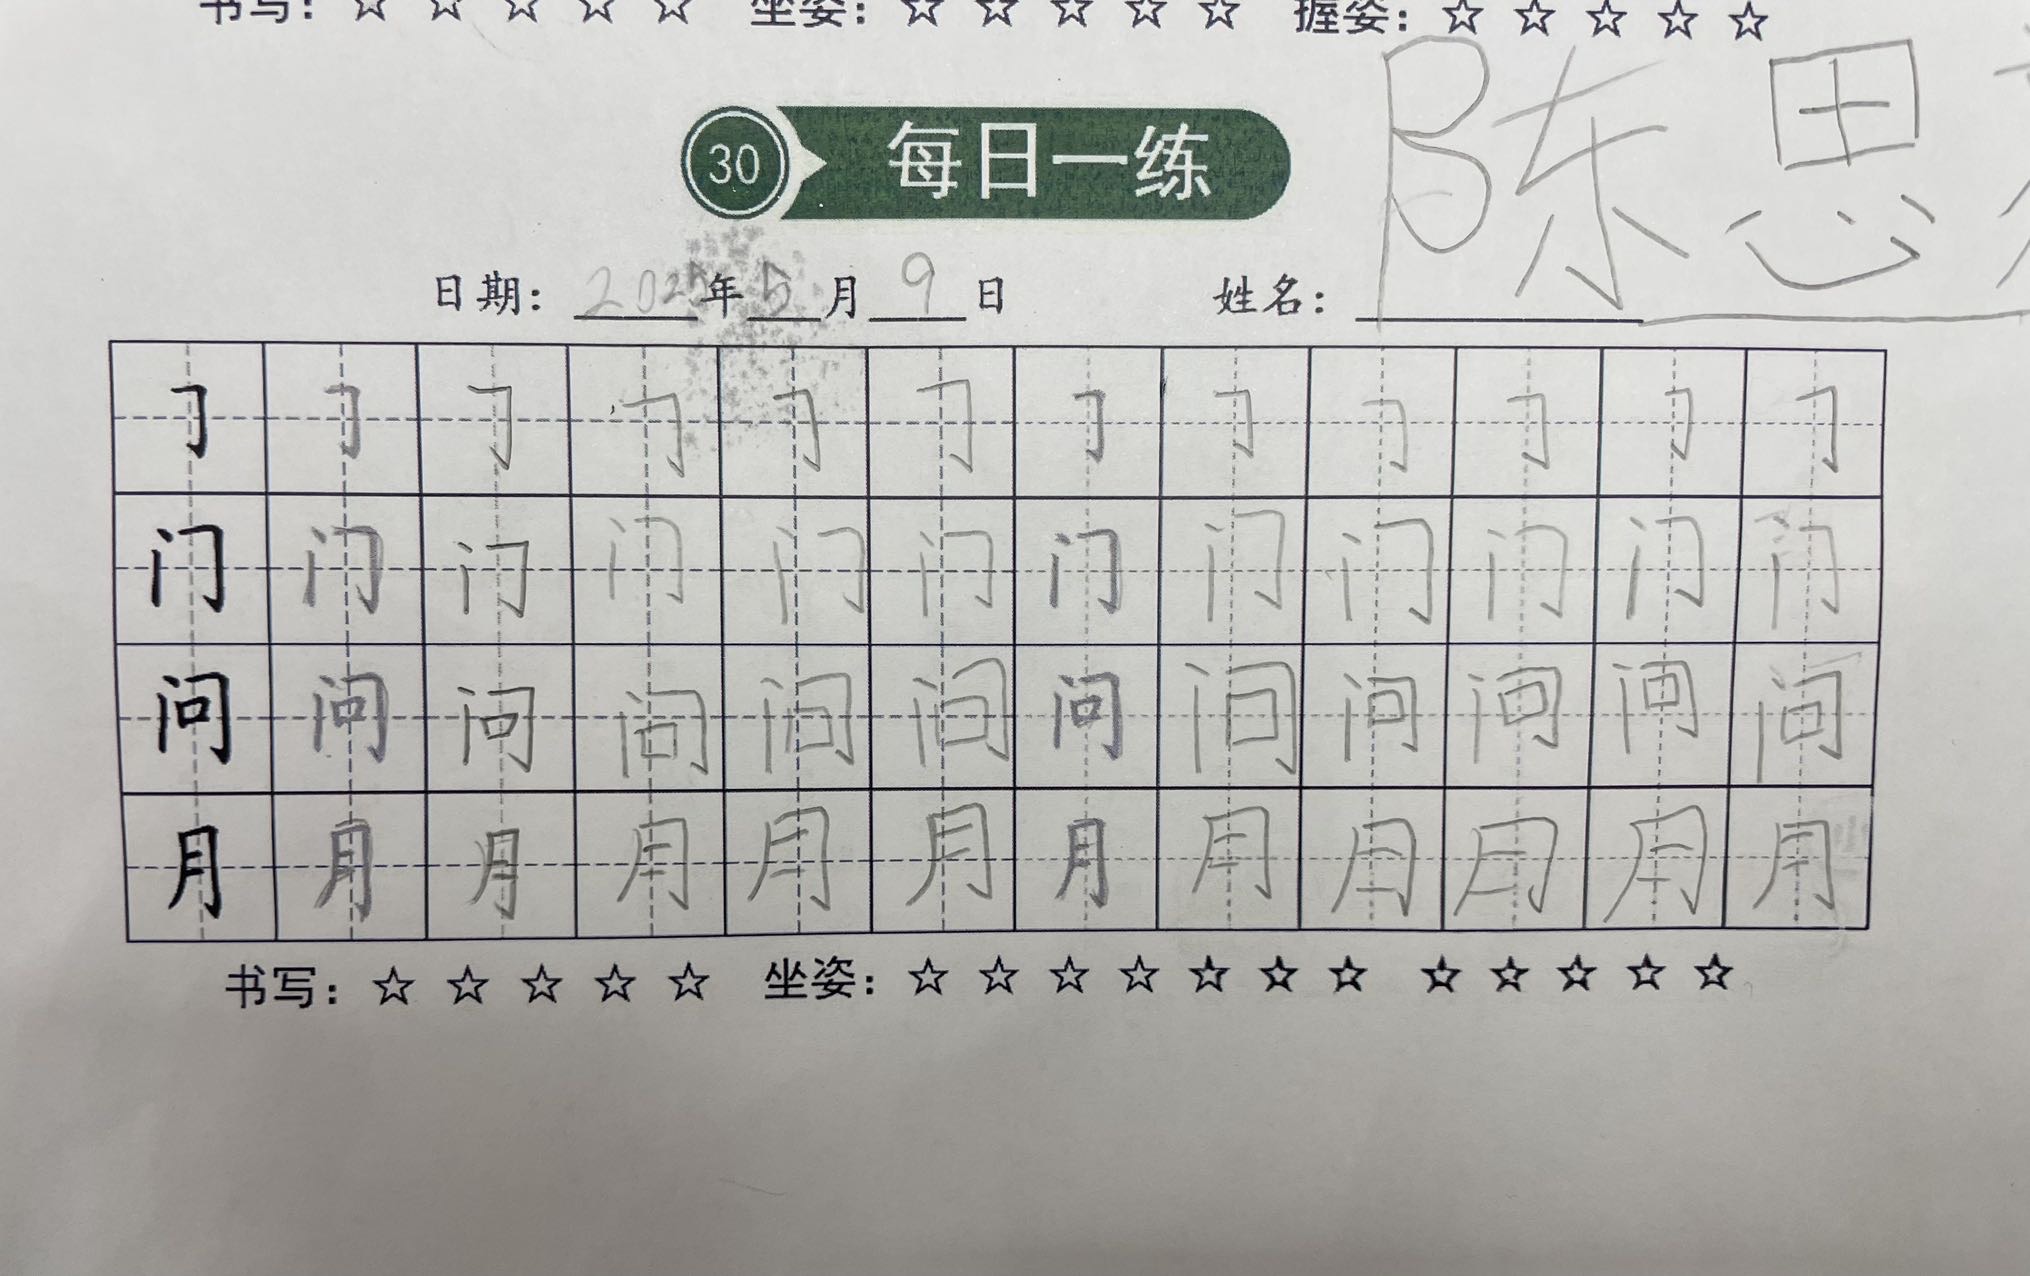 书写：☆ ☆ ☆ ☆ ☆ 坐姿：☆ ☆ ☆ ☆ ☆ 握姿：☆ ☆ ☆ ☆ ☆
30 每日一练
日期：2025年5月9日 姓名：陈思
𠃌 𠃌 𠃌 𠃌 𠃌 𠃌 𠃌 𠃌 𠃌 𠃌 𠃌 𠃌
门 门 门 门 门 门 门 门 门 门 门 门
问 问 问 问 问 问 问 问 问 问 问 问
月 月 月 月 月 月 月 月 月 月 月 月
书写：☆ ☆ ☆ ☆ ☆ 坐姿：☆ ☆ ☆ ☆ ☆ ☆ ☆ ☆ ☆ ☆ ☆ ☆